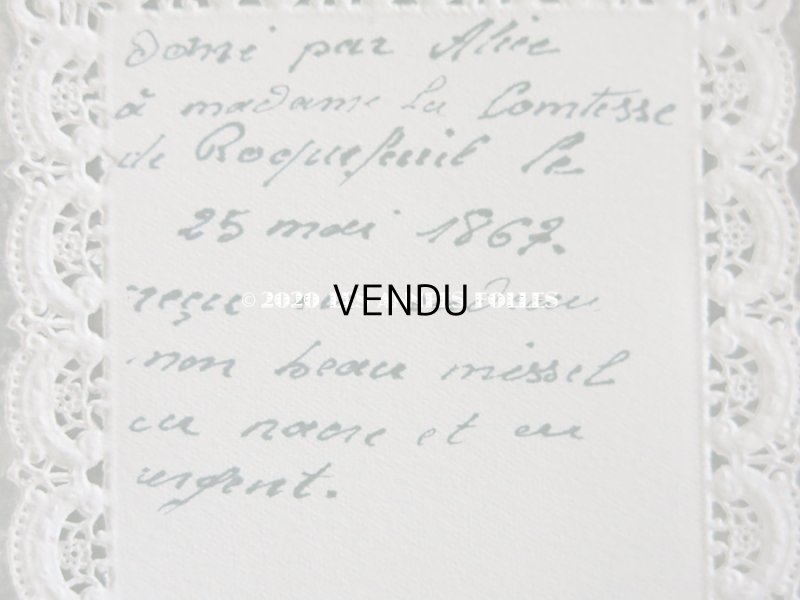 Donné par Alice
à madame la Comtesse
de Roquefeuil le
25 mai 1867.
reçu
© 2020 FOLIES
VENDU
mon beau missel
en nacre et en
argent.